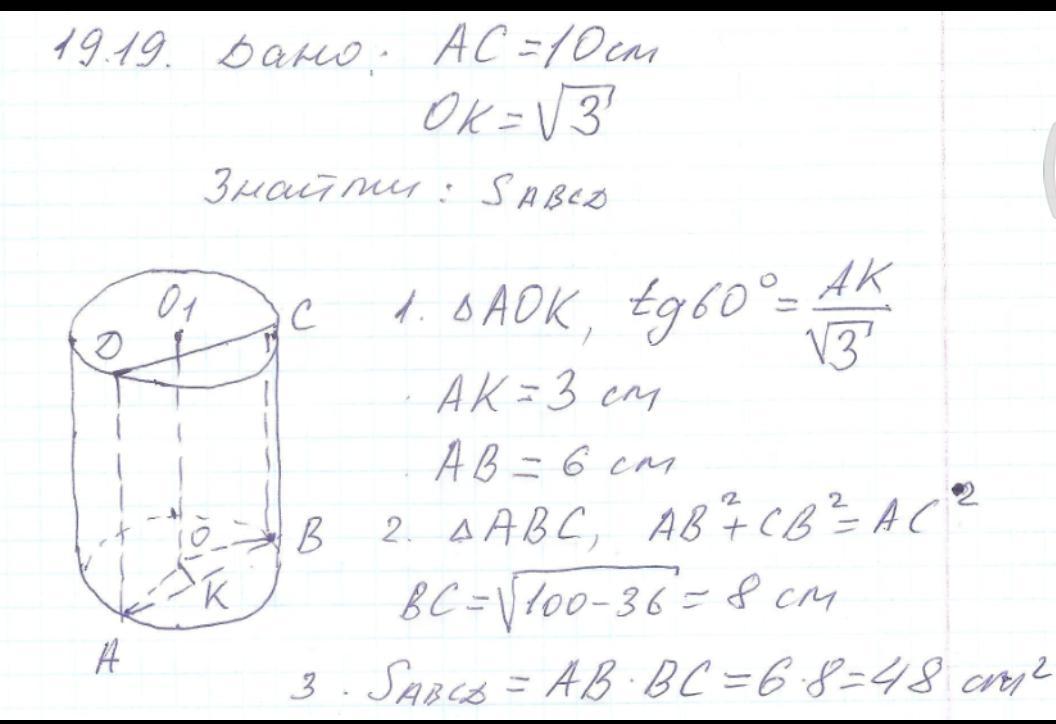 19.19. Дано: AC = 10 см
OK = √3
Знайти: S ABCD
O1
C
D
1. △AOK, tg60° = AK/√3
AK = 3 см
AB = 6 см
O
B
K
A
2. △ABC, AB² + CB² = AC²
BC = √100-36 = 8 см
3. SABCD = AB · BC = 6·8 = 48 см²